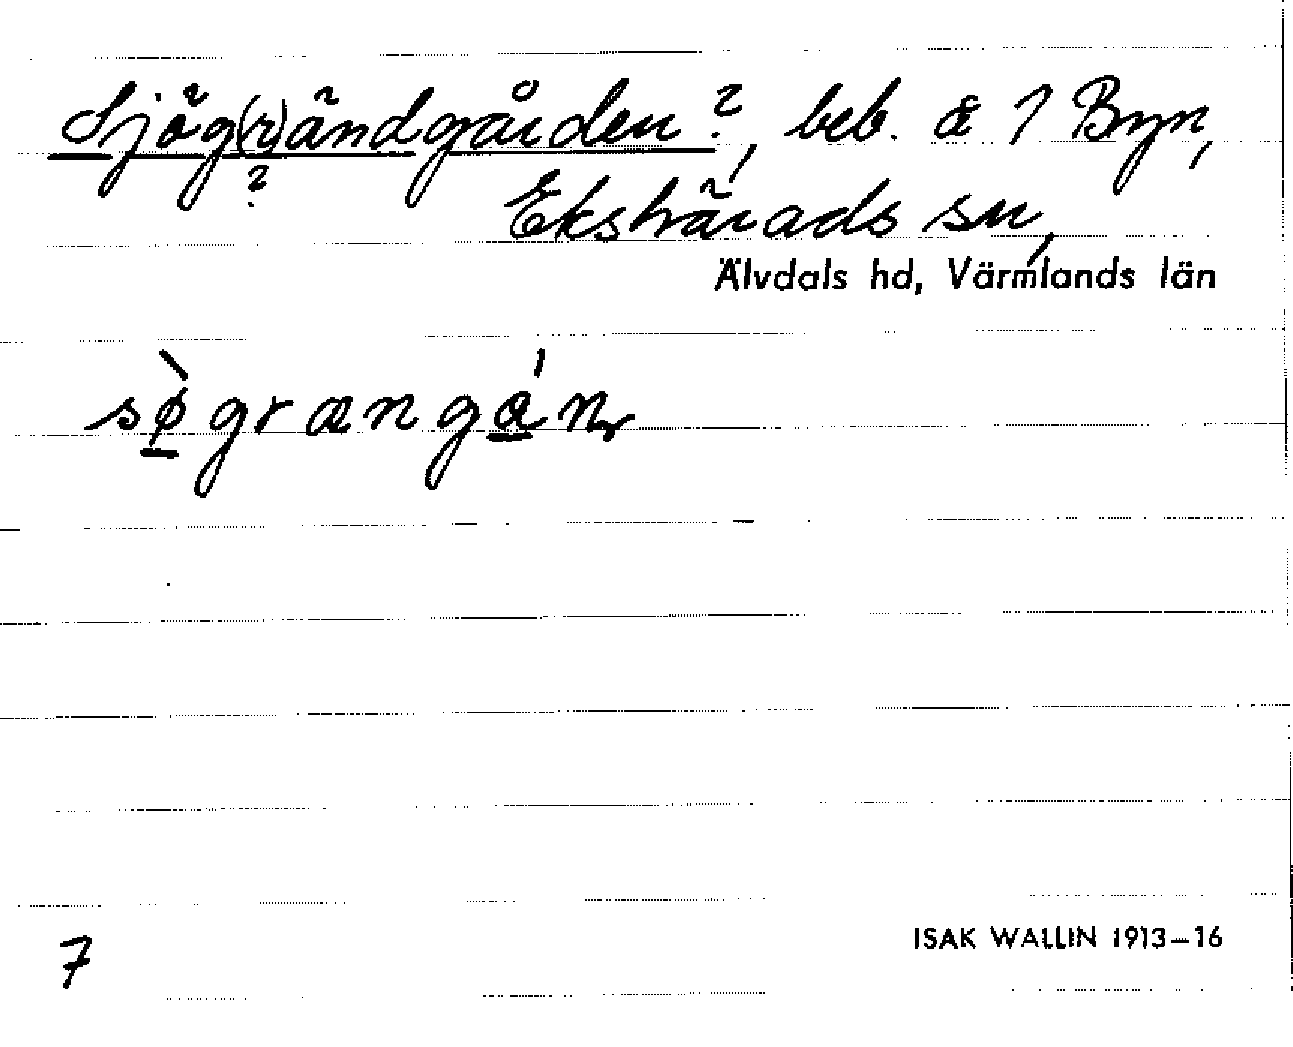 Sjög(r)ändgården?, beb. å 1 Byn,
?
Ekshärads sn,
Älvdals hd, Värmlands län
sø̀grængánɼ
7
ISAK WALLIN 1913–16